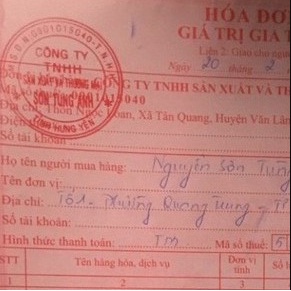 HÓA ĐƠ
GIÁ TRỊ GIA T
Liên 2: Giao cho ngư
Ngày 20 tháng 2
CÔNG TY
TNHH
SẢN XUẤT VÀ THƯƠNG MẠI
SƠN TÙNG ANH
T.HƯNG YÊN
CÔNG TY TNHH SẢN XUẤT VÀ TH
Mã số thuế: 5040
Địa chỉ: Thôn Ngọc Loan, Xã Tân Quang, Huyện Văn Lâm
Điện
Số tài khoản
Họ tên người mua hàng: Nguyễn Sơn Tùng
Tên đơn vị:
Địa chỉ: Tổ 1 - Phường Quang Trung - TP
Số tài khoản:
Hình thức thanh toán: TM Mã số thuế: 5
STT Tên hàng hóa, dịch vụ Đơn vị tính Số l
1 2 3